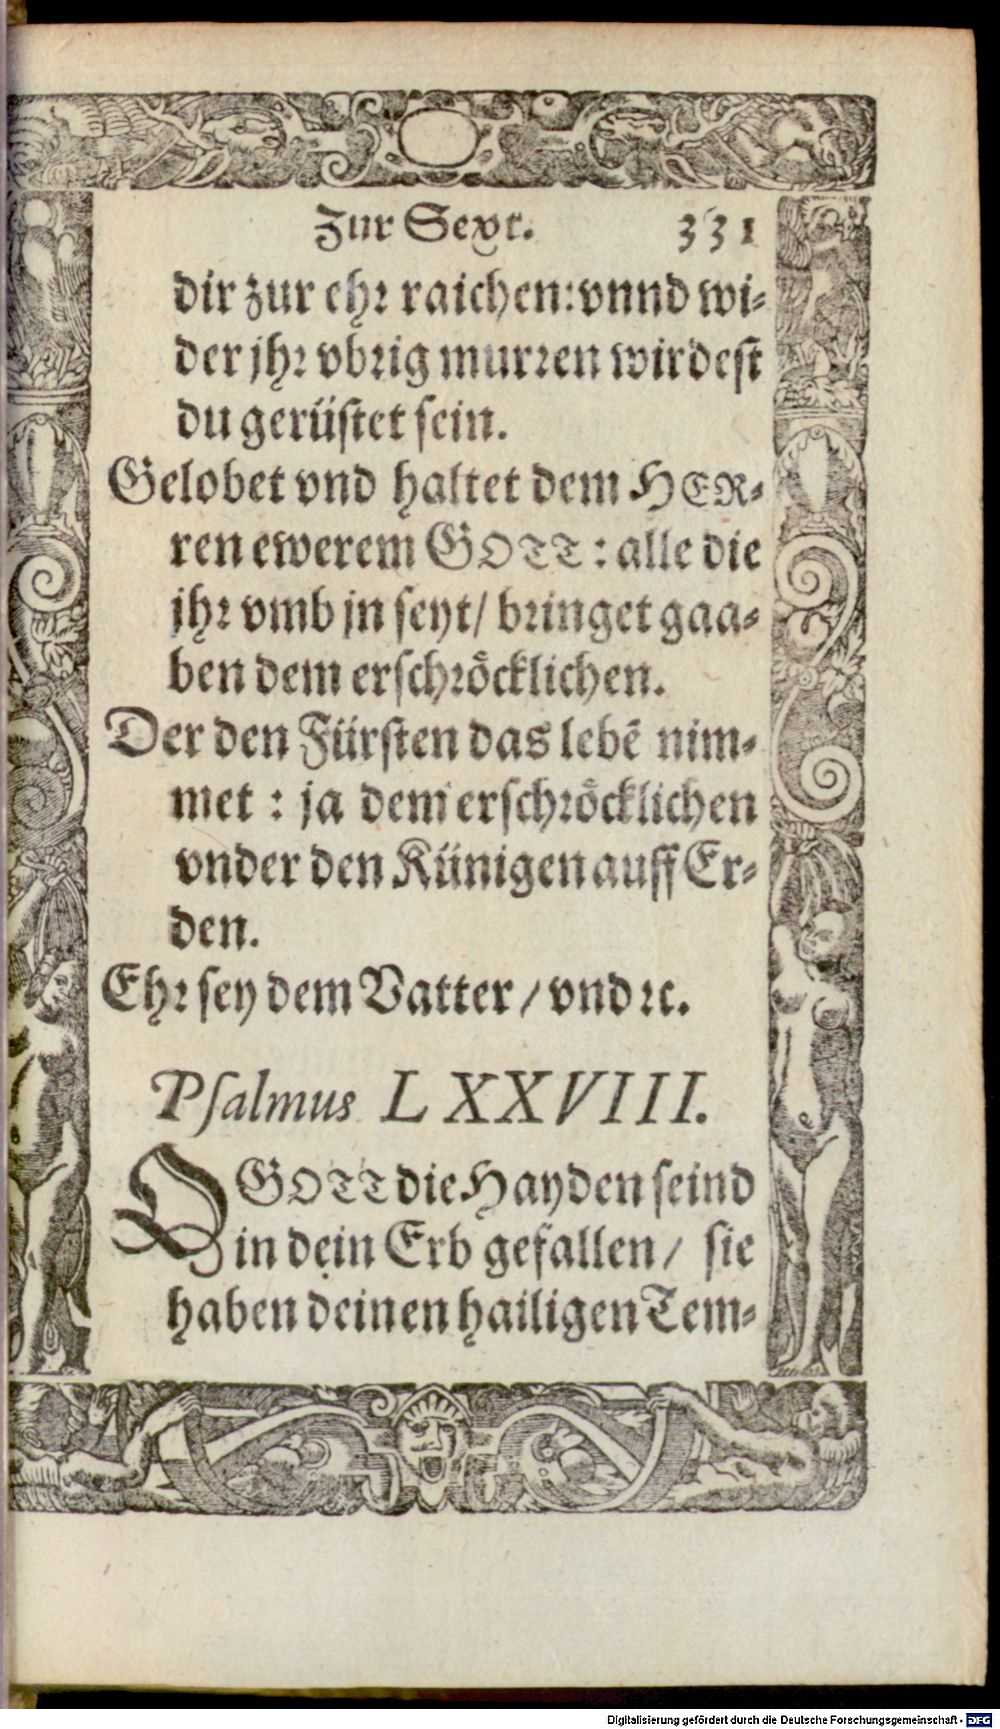 Zur Sext. 331
dir zur ehr raichen: vnnd wi-
der jhr vbrig murren wirdest
du gerüstet sein.
Gelobet vnd haltet dem HER-
ren ewerem GOTT : alle die
jhr vmb jn seyt/ bringet gaa-
ben dem erschröcklichen.
Der den Fürsten das lebē nim-
met : ja dem erschröcklichen
vnder den Künigen auff Er-
den.
Ehr sey dem Vatter / vnd ꝛc.
Psalmus LXXVIII.
O GOTT die Hayden seind
in dein Erb gefallen / sie
haben deinen hailigen Tem-
Digitalisierung gefördert durch die Deutsche Forschungsgemeinschaft - DFG